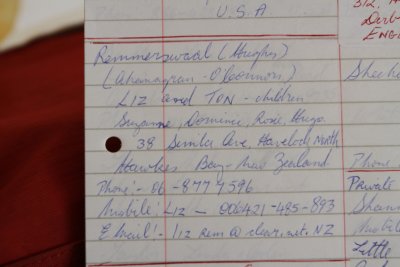 U.S.A
312,
Derb
ENGL
Remmerswaal (Hughes)
(Ahanagran - O'Connors)
LIZ and TON - children
Suzanne, Dominic, Rosie, Hugo.
38 Simla Ave, Havelock North
Hawkes Bay - New Zealand
Phone:- 06 - 877 7596
Mobile:- Liz - 006421 - 485 - 893
E Mail:- liz rem @ clear.net.NZ
Sheeha
Phone
Private
Shann
Mobile
Little